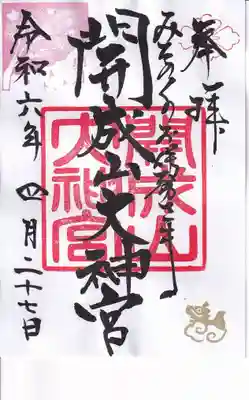 奉拝
みちのくのお伊勢さま
開成山大神宮
開成山大神宮
令和六年 四月二十七日